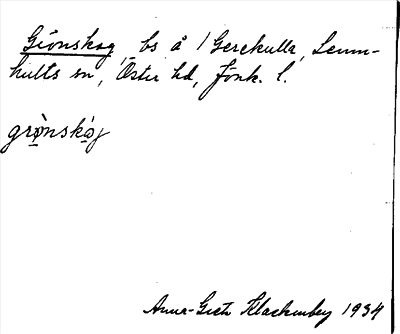 Grönskog, bs å 1 Gerekulla, Lemn-
hults sn, Öster hd, Jönk. l.
grònskóg
Anna-Greta Klackenberg 1934